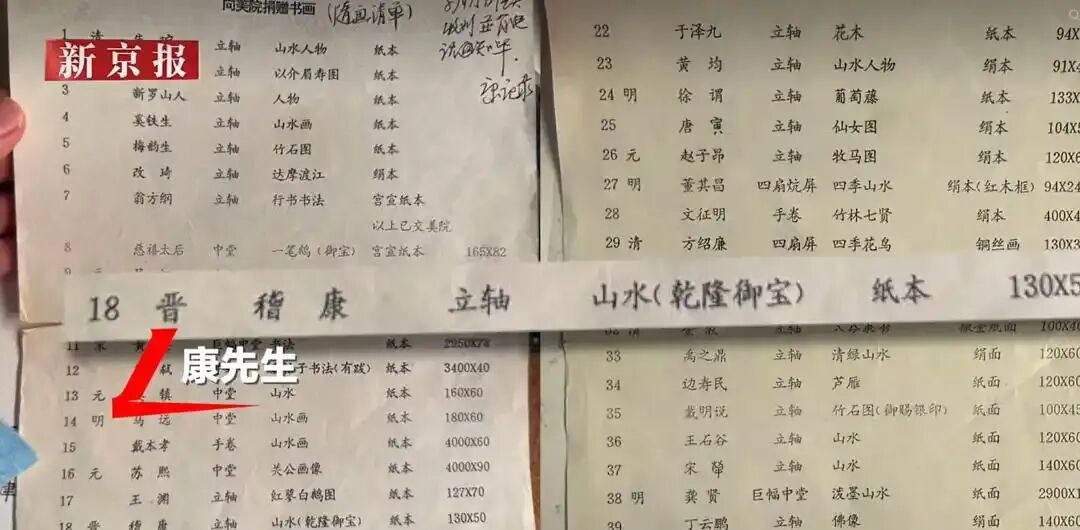 向美院捐赠书画(随画清单)
新京报
1 清 立轴 山水人物 纸本
立轴 以介眉寿图 纸本
3 新罗山人 立轴 人物 纸本
4 奚铁生 立轴 山水画 纸本
5 梅韵生 立轴 竹石图 纸本
6 改 琦 立轴 达摩渡江 绢本
7 翁方纲 立轴 行书书法 宫宣纸本
以上已交美院
8 慈禧太后 中堂 一笔鹅(御宝) 宫宣纸本 165X82
18 晋 稽 康 立轴 山水(乾隆御宝) 纸本 130X5
康先生
11 巨幅中堂 书法 纸本 2950X78
12 子书法(有跋) 纸本 3400X40
13 元 镇 中堂 山水 纸本 160X60
14 明 马 远 中堂 山水画 纸本 180X60
15 戴本孝 手卷 山水画 纸本 4000X60
16 元 苏 熙 中堂 关公画像 纸本 4000X90
17 王 渊 立轴 红蓼白鹅图 纸本 127X70
18 晋 稽 康 立轴 山水(乾隆御宝) 纸本 130X50
22 于泽九 立轴 花木 纸本 94X
23 黄 均 立轴 山水人物 绢本 91X4
24 明 徐 谓 立轴 葡萄藤 纸本 133X
25 唐 寅 立轴 仙女图 绢本 104X5
26 元 赵子昂 立轴 牧马图 绢本 120X6
27 明 董其昌 四扇炕屏 四季山水 绢本(红木框) 94X24
28 文征明 手卷 竹林七贤 绢本 400X4
29 清 方绍廉 四扇屏 四季花鸟 铜丝画 130X3
33 禹之鼎 立轴 清绿山水 绢面 120X60
34 边寿民 立轴 芦雁 纸面 120X60
35 戴明说 立轴 竹石图(御赐银印) 纸面 100X45
36 王石谷 立轴 山水 纸面 120X60
37 宋 荦 立轴 山水 纸面 140X60
38 明 龚 贤 巨幅中堂 泼墨山水 纸面 2900X1
39 丁云鹏 立轴 佛像 绢面 140X60